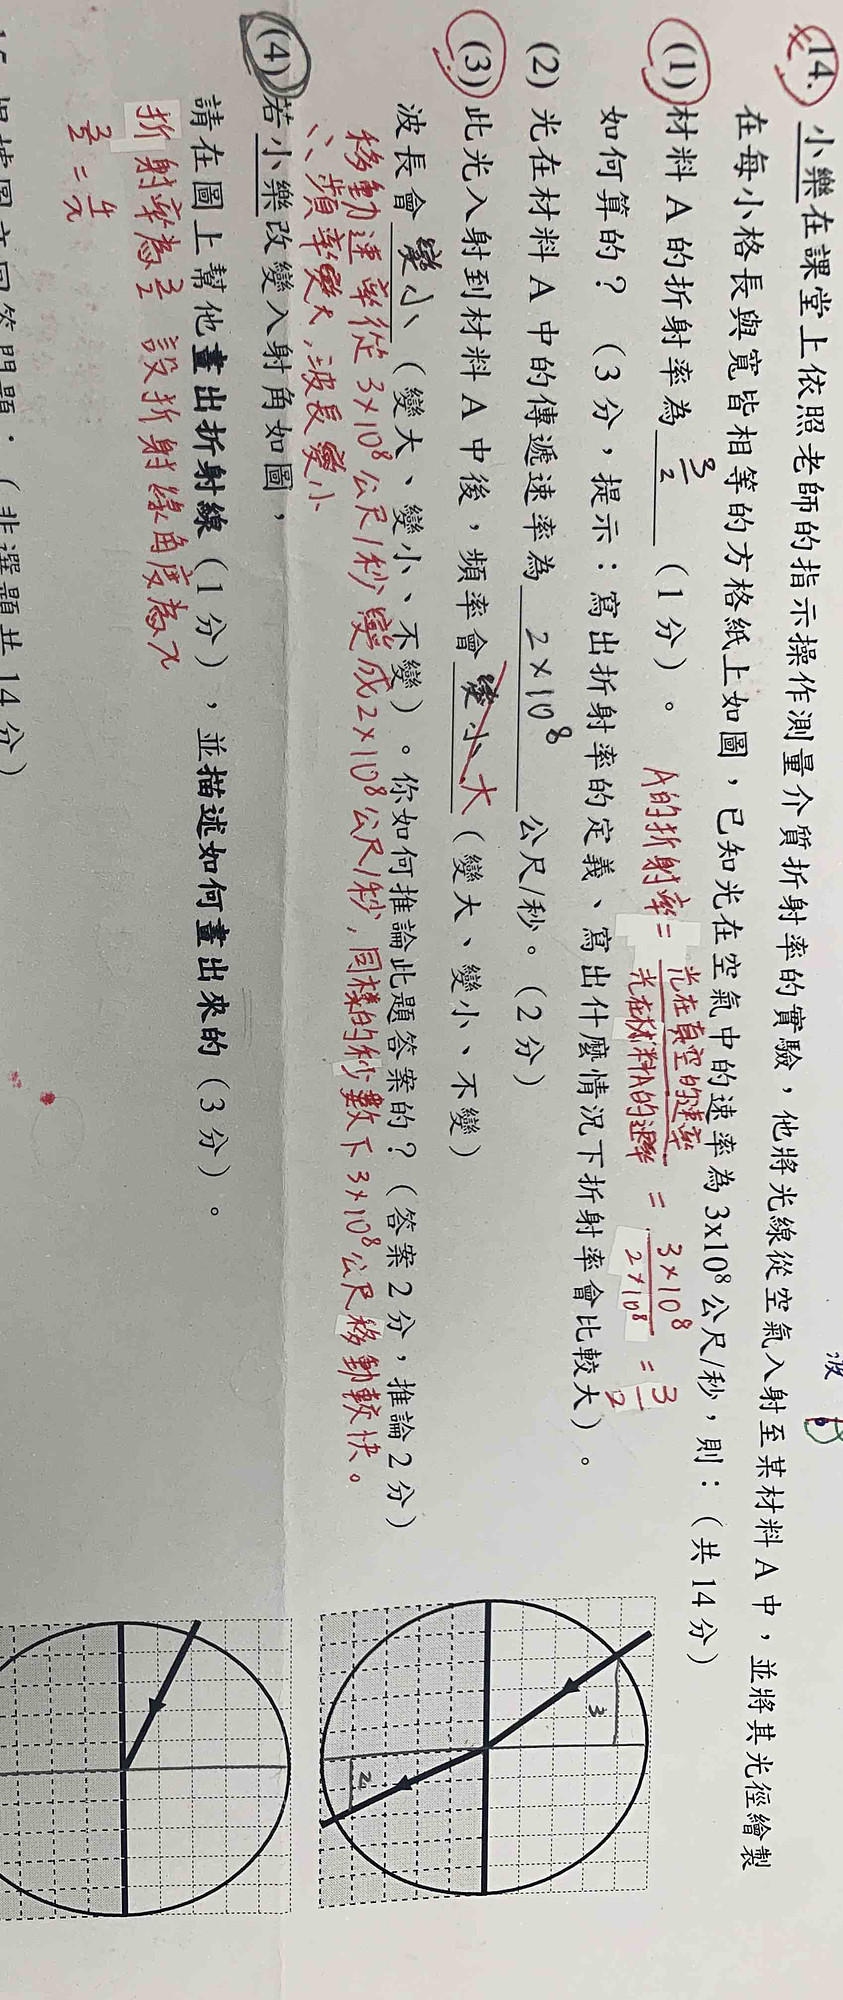 波
14. 小樂在課堂上依照老師的指示操作測量介質折射率的實驗，他將光線從空氣入射至某材料A中，並將其光徑繪製
在每小格長與寬皆相等的方格紙上如圖，已知光在空氣中的速率為3x10⁸公尺/秒，則：（共14分）
(1) 材料A的折射率為 3/2 （1分）。
A的折射率= 光在真空的速率/光在材料A的速率 = 3×10⁸/2×10⁸ = 3/2
如何算的？（3分，提示：寫出折射率的定義、寫出什麼情況下折射率會比較大）。
(2) 光在材料A中的傳遞速率為 2×10⁸ 公尺/秒。（2分）
(3) 此光入射到材料A中後，頻率會 變小 大（變大、變小、不變）
波長會 變小 （變大、變小、不變）。你如何推論此題答案的？（答案2分，推論2分）
移動速率從3×10⁸公尺/秒變成2×10⁸公尺/秒，同樣的秒數下3×10⁸公尺移動較快。
∴頻率變大，波長變小
3
2
(4) 若小樂改變入射角如圖，
請在圖上幫他畫出折射線（1分），並描述如何畫出來的（3分）。
折射率為3/2 設折射線角度為x
3/2 = 4/x